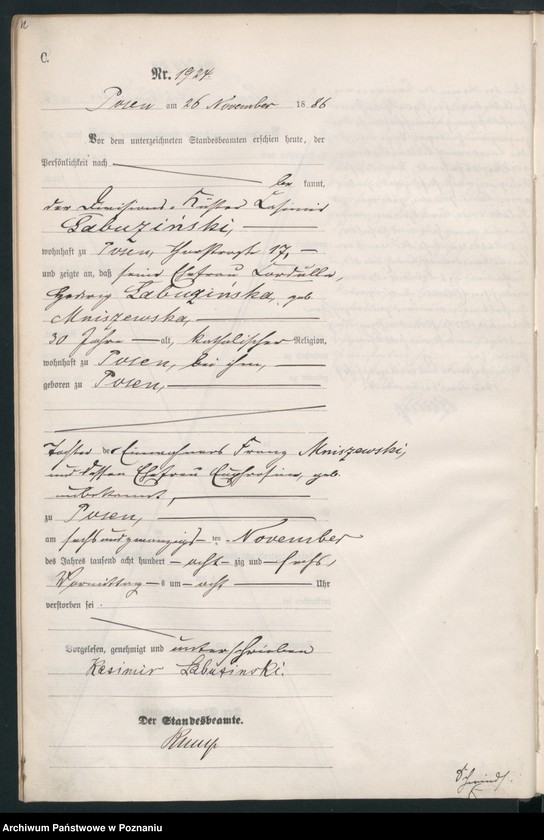 C.
Nr. 1924
Posen am 26 November 1886
Vor dem unterzeichneten Standesbeamten erschien heute, der
Persönlichkeit nach
be kannt,
der Divisions-Küster Casimir
Łabuziński,
wohnhaft zu Posen, 17,
und zeigte an, daß seine Ehefrau Cordulla,
Hedwig Łabuzińska, geb.
Mniszewska,
30 Jahre alt, katholischer Religion,
wohnhaft zu Posen, bei ihm,
geboren zu Posen,
Tochter des Einwohners Franz Mniszewski,
und dessen Ehefrau Euphrosine, geb.
unbekannt,
zu Posen,
am sechsundzwanzigsten November
des Jahres tausend acht hundert acht zig und sechs,
Vormittags um acht Uhr
verstorben sei.
Vorgelesen, genehmigt und unterschrieben
Kasimir Łabuzinski.
Der Standesbeamte.
Archiwum Państwowe w Poznaniu